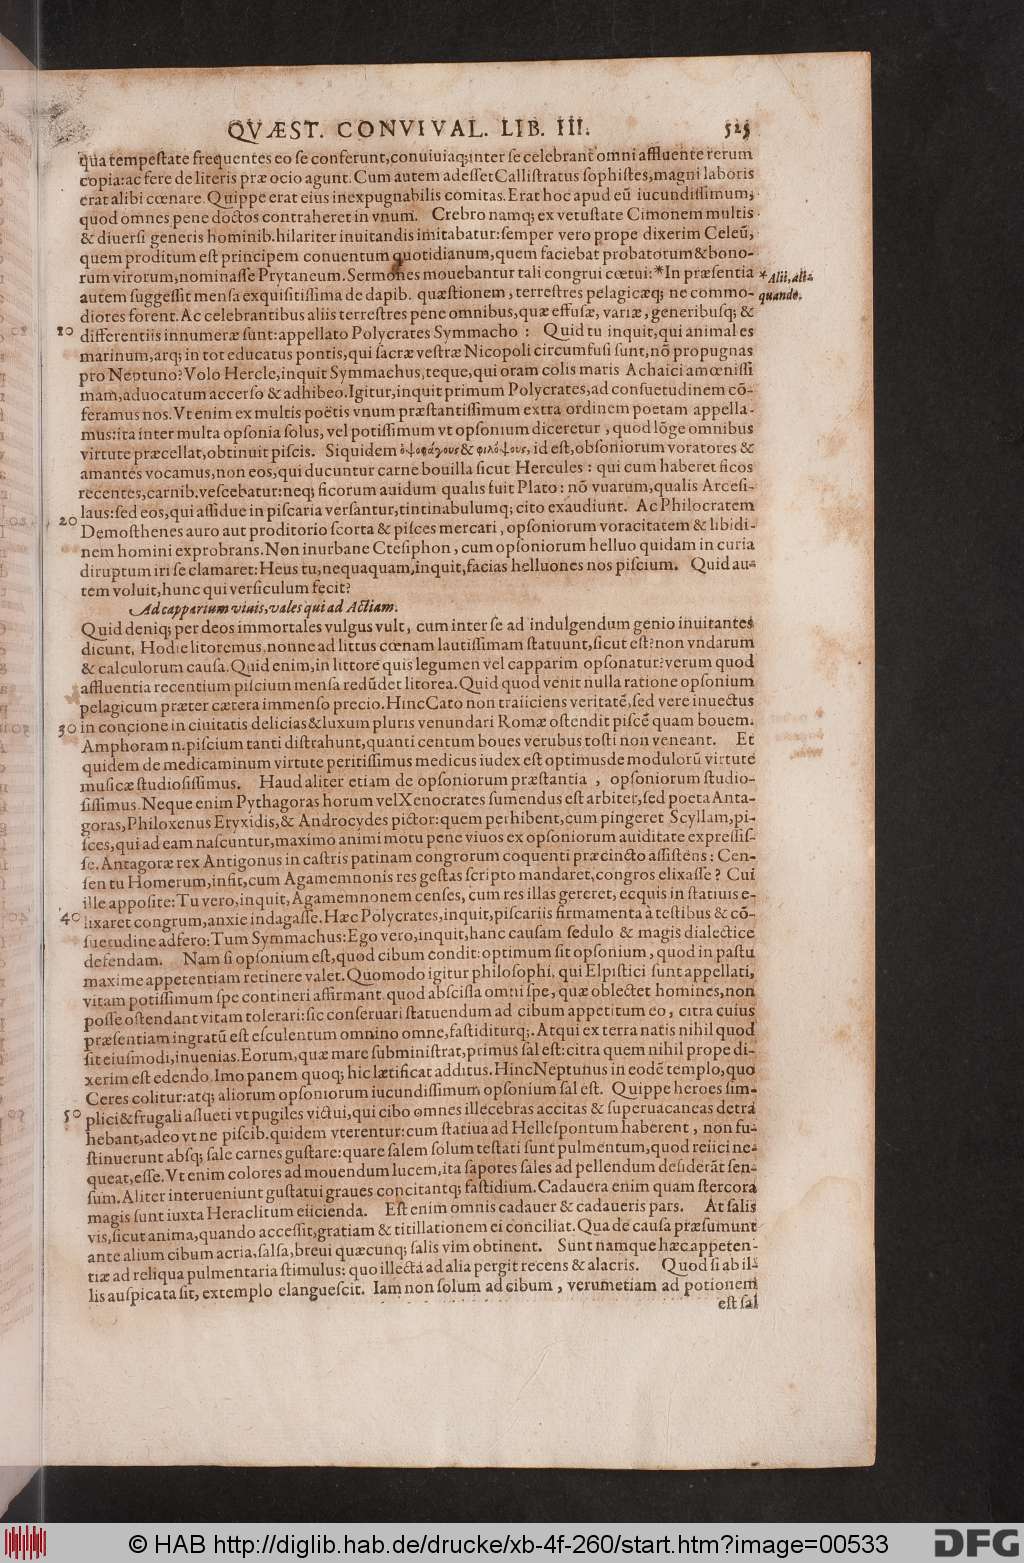 QVÆST. CONVIVAL. LIB. III. 525
qua tempeſtate frequentes eo ſe conferunt, conuiuiaq; inter ſe celebrant omni affluente rerum
copia: ac fere de literis præ ocio agunt. Cum autem adeſſet Calliſtratus ſophiſtes, magni laboris
erat alibi cœnare. Quippe erat eius inexpugnabilis comitas. Erat hoc apud eū iucundiſſimum,
quod omnes pene doctos contraheret in vnum. Crebro namq; ex vetuſtate Cimonem multis
& diuerſi generis hominib. hilariter inuitandis imitabatur: ſemper vero prope dixerim Celeū,
quem proditum eſt principem conuentum quotidianum, quem faciebat probatorum & bono-
rum virorum, nominaſſe Prytaneum. Sermones mouebantur tali congrui cœtui: *In præſentia
* Alii, ali-
quando.
autem ſuggeſſit menſa exquiſitiſſima de dapib. quæſtionem, terreſtres pelagicæq; ne commo-
diores forent. Ac celebrantibus aliis terreſtres pene omnibus, quæ effuſæ, variæ, generibuſq; &
10 differentiis innumeræ ſunt: appellato Polycrates Symmacho: Quid tu inquit, qui animal es
marinum, atq; in tot educatus pontis, qui ſacræ veſtræ Nicopoli circumfuſi ſunt, nō propugnas
pro Neptuno? Volo Hercle, inquit Symmachus, teque, qui oram colis maris Achaici amœniſſi
mam, aduocatum accerſo & adhibeo. Igitur, inquit primum Polycrates, ad conſuetudinem cō-
feramus nos. Vt enim ex multis poëtis vnum præſtantiſſimum extra ordinem poetam appella-
mus: ita inter multa opſonia ſolus, vel potiſſimum vt opſonium diceretur, quod lōge omnibus
virtute præcellat, obtinuit piſcis. Siquidem ὀψοφάγους & φιλόψους, id eſt, obſoniorum voratores &
amantes vocamus, non eos, qui ducuntur carne bouilla ſicut Hercules: qui cum haberet ficos
recentes, carnib. veſcebatur: neq; ficorum auidum qualis fuit Plato: nō vuarum, qualis Arceſi-
laus: ſed eos, qui aſſidue in piſcaria verſantur, tintinabulumq; cito exaudiunt. Ac Philocratem
20 Demoſthenes auro aut proditorio ſcorta & piſces mercari, opſoniorum voracitatem & libidi-
nem homini exprobrans. Non inurbane Cteſiphon, cum opſoniorum helluo quidam in curia
diruptum iri ſe clamaret: Heus tu, nequaquam, inquit, facias helluones nos piſcium. Quid au-
tem voluit, hunc qui verſiculum fecit?
Ad capparium viuis, vales qui ad Actiam.
Quid deniq; per deos immortales vulgus vult, cum inter ſe ad indulgendum genio inuitantes
dicunt, Hodie litoremus, nonne ad littus cœnam lautiſſimam ſtatuunt, ſicut eſt? non vndarum
& calculorum cauſa. Quid enim, in littore quis legumen vel capparim opſonatur? verum quod
affluentia recentium piſcium menſa redūdet litorea. Quid quod venit nulla ratione opſonium
pelagicum præter cætera immenſo precio. Hinc Cato non traiiciens veritatē, ſed vere inuectus
30 in concione in ciuitatis delicias & luxum pluris venundari Romæ oſtendit piſcē quam bouem.
Amphoram n. piſcium tanti diſtrahunt, quanti centum boues verubus toſti non veneant. Et
quidem de medicaminum virtute peritiſſimus medicus iudex eſt optimus de modulorū virtute
muſicæ ſtudioſiſſimus. Haud aliter etiam de opſoniorum præſtantia, opſoniorum ſtudio-
ſiſſimus. Neque enim Pythagoras horum vel Xenocrates ſumendus eſt arbiter, ſed poeta Anta-
goras, Philoxenus Eryxidis, & Androcydes pictor: quem perhibent, cum pingeret Scyllam, pi-
ſces, qui ad eam naſcuntur, maximo animi motu pene viuos ex opſoniorum auiditate expreſſiſ-
ſe. Antagoræ rex Antigonus in caſtris patinam congrorum coquenti præcincto aſſiſtens: Cen-
ſen tu Homerum, inſit, cum Agamemnonis res geſtas ſcripto mandaret, congros elixaſſe? Cui
ille appoſite: Tu vero, inquit, Agamemnonem cenſes, cum res illas gereret, ecquis in ſtatiuis e-
40 lixaret congrum, anxie indagaſſe. Hæc Polycrates, inquit, piſcariis firmamenta a teſtibus & cō-
ſuetudine adfero: Tum Symmachus: Ego vero, inquit, hanc cauſam ſedulo & magis dialectice
defendam. Nam ſi opſonium eſt, quod cibum condit: optimum ſit opſonium, quod in paſtu
maxime appetentiam retinere valet. Quomodo igitur philoſophi, qui Elpiſtici ſunt appellati,
vitam potiſſimum ſpe contineri affirmant, quod abſciſſa omni ſpe, quæ oblectet homines, non
poſſe oſtendant vitam tolerari: ſic conſeruari ſtatuendum ad cibum appetitum eo, citra cuius
præſentiam ingratū eſt eſculentum omnino omne, faſtiditurq;. Atqui ex terra natis nihil quod
ſit eiuſmodi, inuenias. Eorum, quæ mare ſubminiſtrat, primus ſal eſt: citra quem nihil prope di-
xerim eſt edendo. Imo panem quoq; hic lætificat additus. Hinc Neptunus in eodē templo, quo
Ceres colitur: atq; aliorum opſoniorum iucundiſſimum opſonium ſal eſt. Quippe heroes ſim-
50 plici & frugali aſſueti vt pugiles victui, qui cibo omnes illecebras accitas & ſuperuacaneas detra
hebant, adeo vt ne piſcib. quidem vterentur: cum ſtatiua ad Helleſpontum haberent, non ſu-
ſtinuerunt abſq; ſale carnes guſtare: quare ſalem ſolum teſtati ſunt pulmentum, quod reiici ne-
queat, eſſe. Vt enim colores ad mouendum lucem, ita ſapores ſales ad pellendum deſiderāt ſen-
ſum. Aliter interueniunt guſtatui graues concitantq; faſtidium. Cadauera enim quam ſtercora
magis ſunt iuxta Heraclitum eiicienda. Eſt enim omnis cadauer & cadaueris pars. At ſalis
vis, ſicut anima, quando acceſſit, gratiam & titillationem ei conciliat. Qua de cauſa præſumunt
ante alium cibum acria, ſalſa, breui quæcunq; ſalis vim obtinent. Sunt namque hæc appeten-
tiæ ad reliqua pulmentaria ſtimulus: quo illecta ad alia pergit recens & alacris. Quod ſi ab il-
lis auſpicata ſit, extemplo elangueſcit. Iam non ſolum ad cibum, verumetiam ad potionem
eſt ſal
© HAB http://diglib.hab.de/drucke/xb-4f-260/start.htm?image=00533
DFG